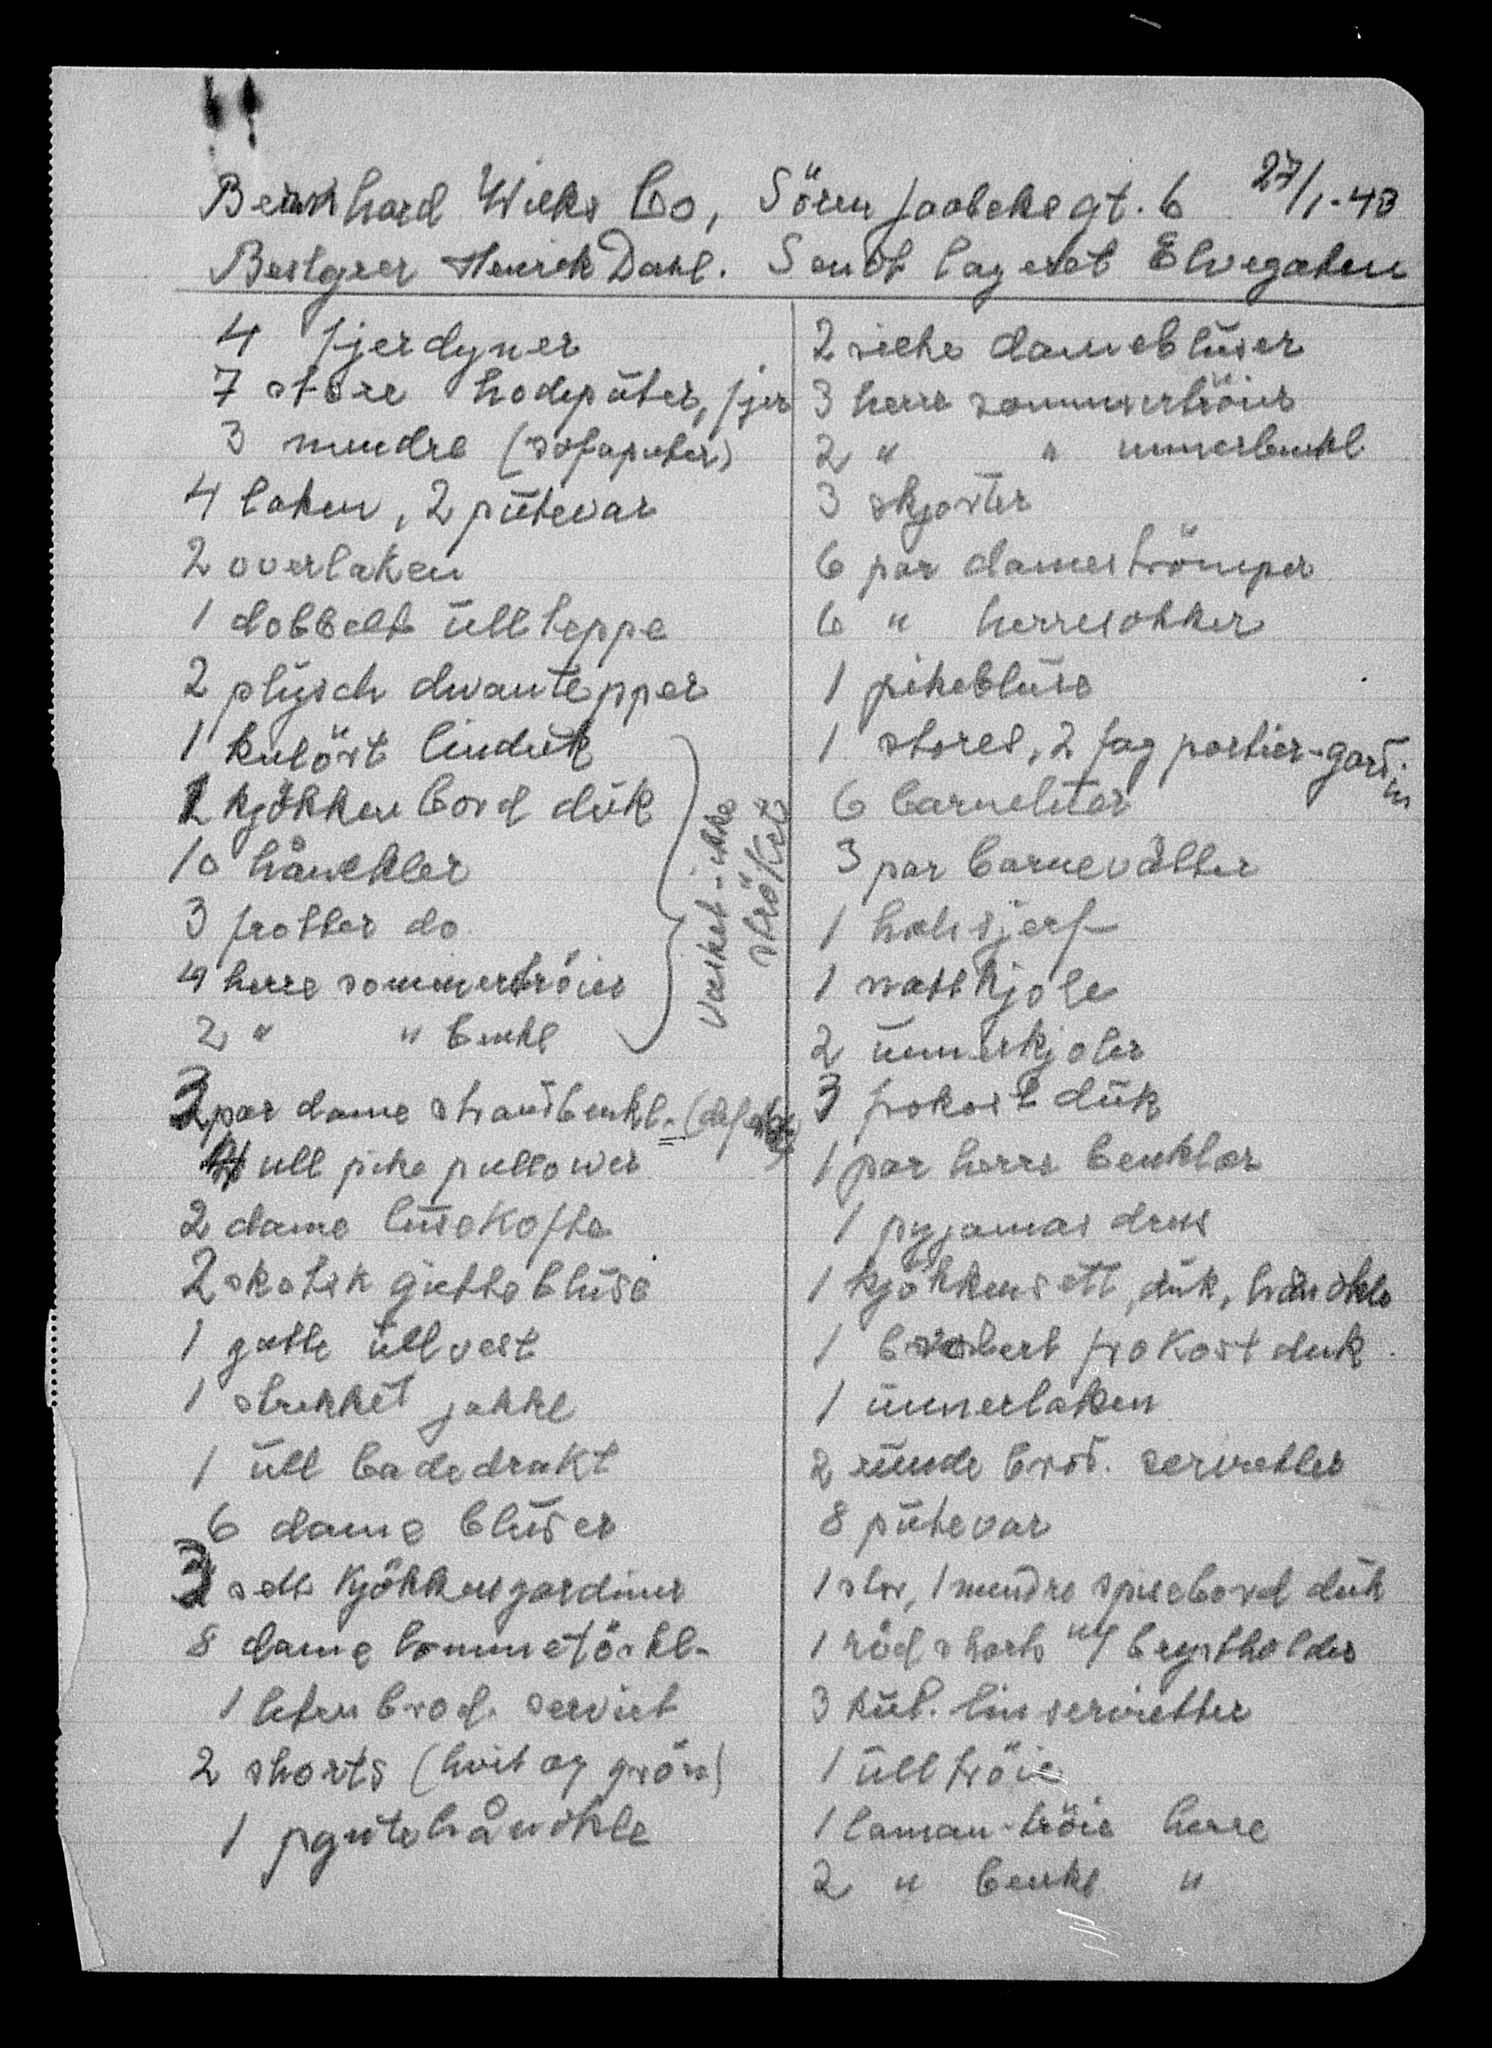 Bernhard Wilks Bo, Sören Jaabeks gt. 6 27/1-43
Bestyrer Henrik Dahl. Sendt lageret Elvegaten
4 fjerdyner
7 store hodepüter, fjer
3 mindre (sofaputer)
4 laken, 2 pütevar
2 overlaken
1 dobbelt üllteppe
2 plüsch divantepper
1 kulört linduk
2 kjökkenbord dük
10 håndklær
3 frotter do
4 herre sommertröier
2 " " benkl
vasket - ikke ströket
3 par dame benkl. (defekte)
4 ull pike pullower
2 dame lüsekofte
2 skotsk gütteblüse
1 gutte üllvest
1 strikket jakke
1 üll badedrakt
6 dame blüser
3 sett kjökkengardiner
8 dame lommetörkl.
1 liten brod. serviet
2 shorts (hvit og grön)
1 pyntehåndkle
2 silke dameblüser
3 herre sommertröier
2 " " unnerbenkl
3 skjorter
6 par dameströmper
6 " herresokker
1 pikeblüse
1 stores, 2 fag portier-gardin
6 barneluer
3 par barnevåtter
1 halsjerf
1 nattkjole
2 ünnerkjoler
3 frokost dük
1 par herre benklær
1 pyjamas dress
1 kjökkensett, dük, håndkle
1 brodert frokost duk
1 ünnerlaken
2 ründe brod. servietter
8 pütevar
1 stor, 1 mindre spisebord dük
1 röd shorts m/ brystholder
3 kül. linservietter
1 ülltröie
1 laman-tröie herre
2 " benkl "